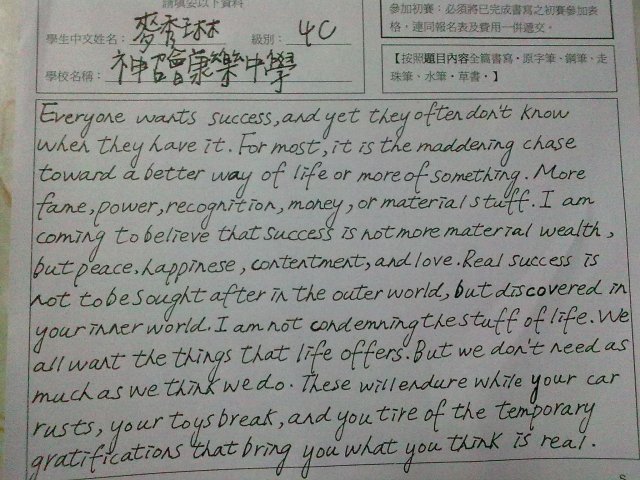 請填妥以下資料
學生中文姓名： 麥秀琳 級別： 4C
學校名稱： 神召會康樂中學
參加初賽：必須將已完成書寫之初賽參加表
格，連同報名表及費用一併遞交。
【按照題目內容全篇書寫，原字筆、鋼筆、走
珠筆、水筆，草書。】
Everyone wants success, and yet they often don't know
when they have it. For most, it is the maddening chase
toward a better way of life or more of something. More
fame, power, recognition, money, or material stuff. I am
coming to believe that success is not more material wealth,
but peace, happinese, contentment, and love. Real success is
not to be sought after in the outer world, but discovered in
your inner world. I am not condemning the stuff of life. We
all want the things that life offers. But we don't need as
much as we think we do. These will endure while your car
rusts, your toys break, and you tire of the temporary
gratifications that bring you what you think is real.